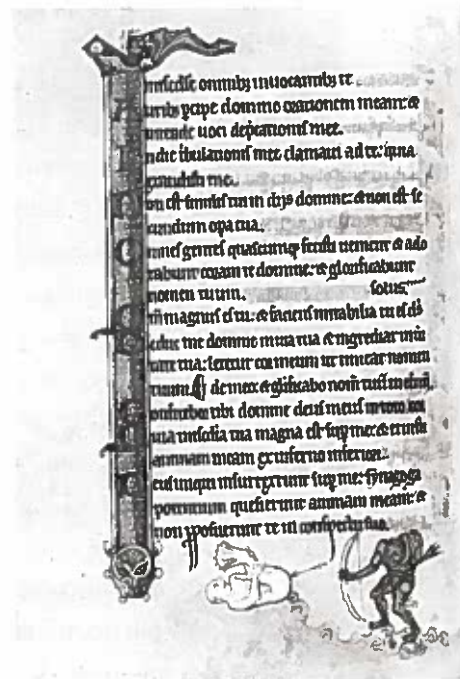 misedie omnibꝫ inuocantibꝫ te
uribꝫ pcipe domine orationem meam: &
intende uoci depcationis mee.
n die tribulationis mee clamaui ad te: quia
exaudisti me.
on est similis tui in diis domine: & non est se
cundum opa tua.
mnes gentes quascumqꝫ fecisti uenient & ado
rabunt coram te domine: & glorificabunt
nomen tuum. solus.
m magnus es tu: & faciens mirabilia tu es ds
educ me domine in uia tua & ingrediar in ueri
tate tua: letetur cor meum ut timeat nomen
tuum. de meo & glificabo nom tuū in etnū,
onfitebor tibi domine deus meus in toto cor
uia misedia tua magna est sup me: & eruisti
animam meam ex inferno inferiori.
eus iniqui insurrexerunt sup me: synagoga
potentium quesierunt animam meam: &
non pposuerunt te in conspectu suo.